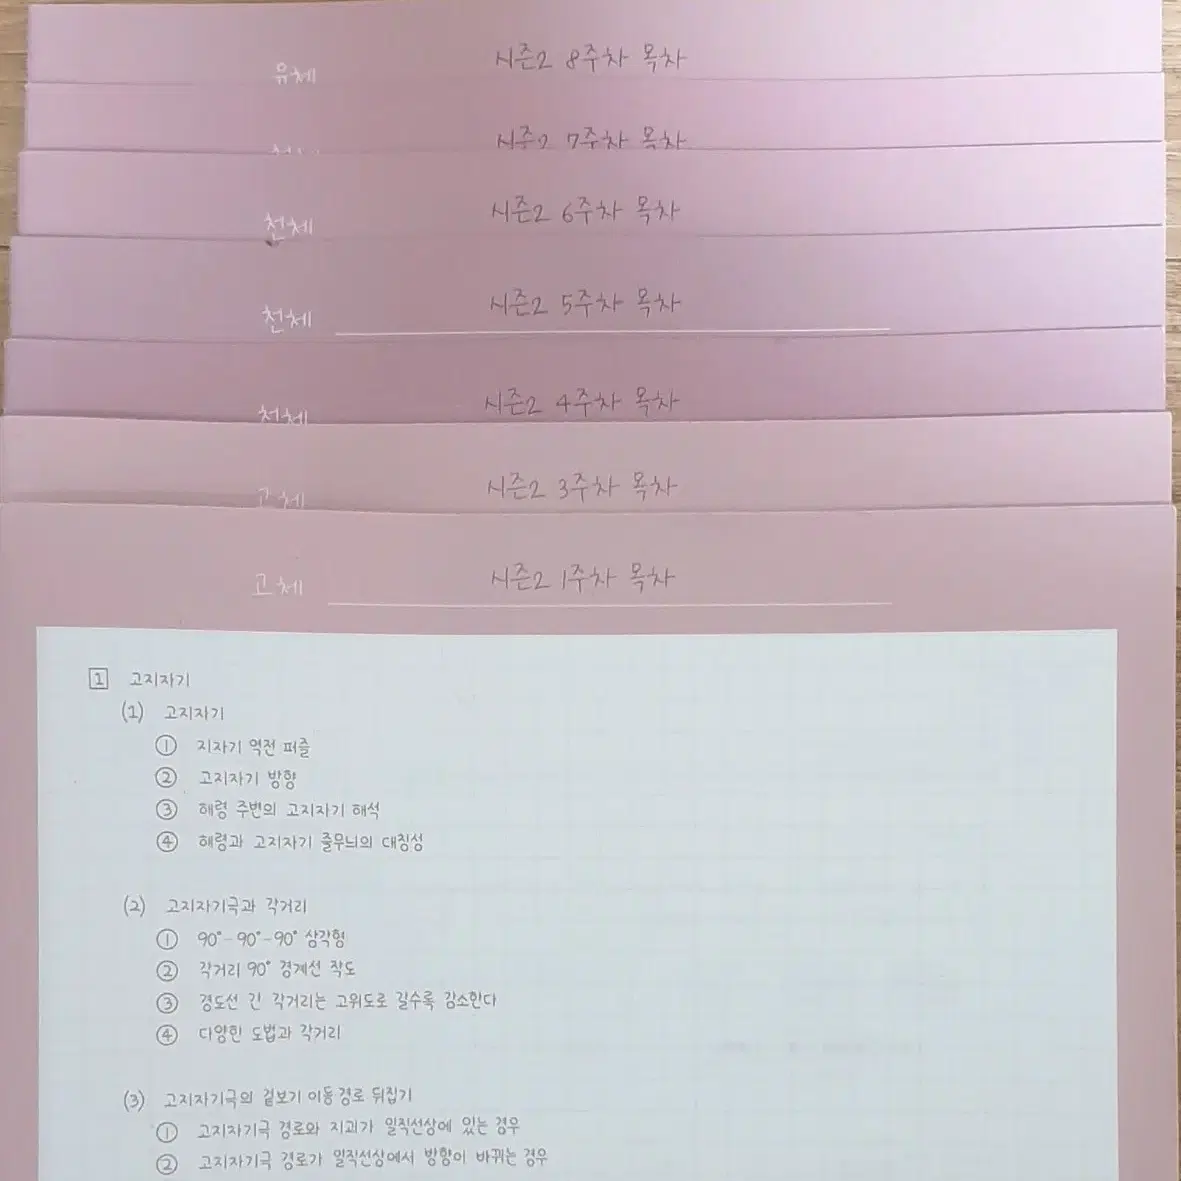 시즌2 8주차 목차
유체
시즌2 7주차 목차
시즌2 6주차 목차
천체
시즌2 5주차 목차
천체
시즌2 4주차 목차
천체
시즌2 3주차 목차
고체
시즌2 1주차 목차
고체
1 고지자기
(1) 고지자기
① 지자기 역전 퍼즐
② 고지자기 방향
③ 해령 주변의 고지자기 해석
④ 해령과 고지자기 줄무늬의 대칭성
(2) 고지자기극과 각거리
① 90°-90°-90° 삼각형
② 각거리 90° 경계선 작도
③ 경도선 간 각거리는 고위도로 갈수록 감소한다
④ 다양한 도법과 각거리
(3) 고지자기극의 겉보기 이동 경로 뒤집기
① 고지자기극 경로와 지괴가 일직선상에 있는 경우
② 고지자기극 경로가 일직선상에서 방향이 바뀌는 경우